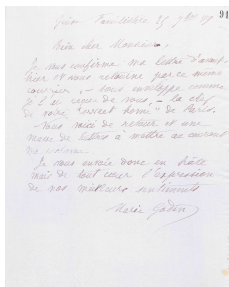 91
Bien cher Monsieur
Je vous confirme ma lettre d'avant
hier et vous retourne par ce même
courrier, - sous enveloppe comme
je l'ai reçue de vous, - la clef
de votre home" de Paris.
Nous voici de retour et une
masse de lettres à mettre au courant
Je vous envoie donc en hâte
mais de tout cœur l'expression
de nos meilleurs sentiments
Marie